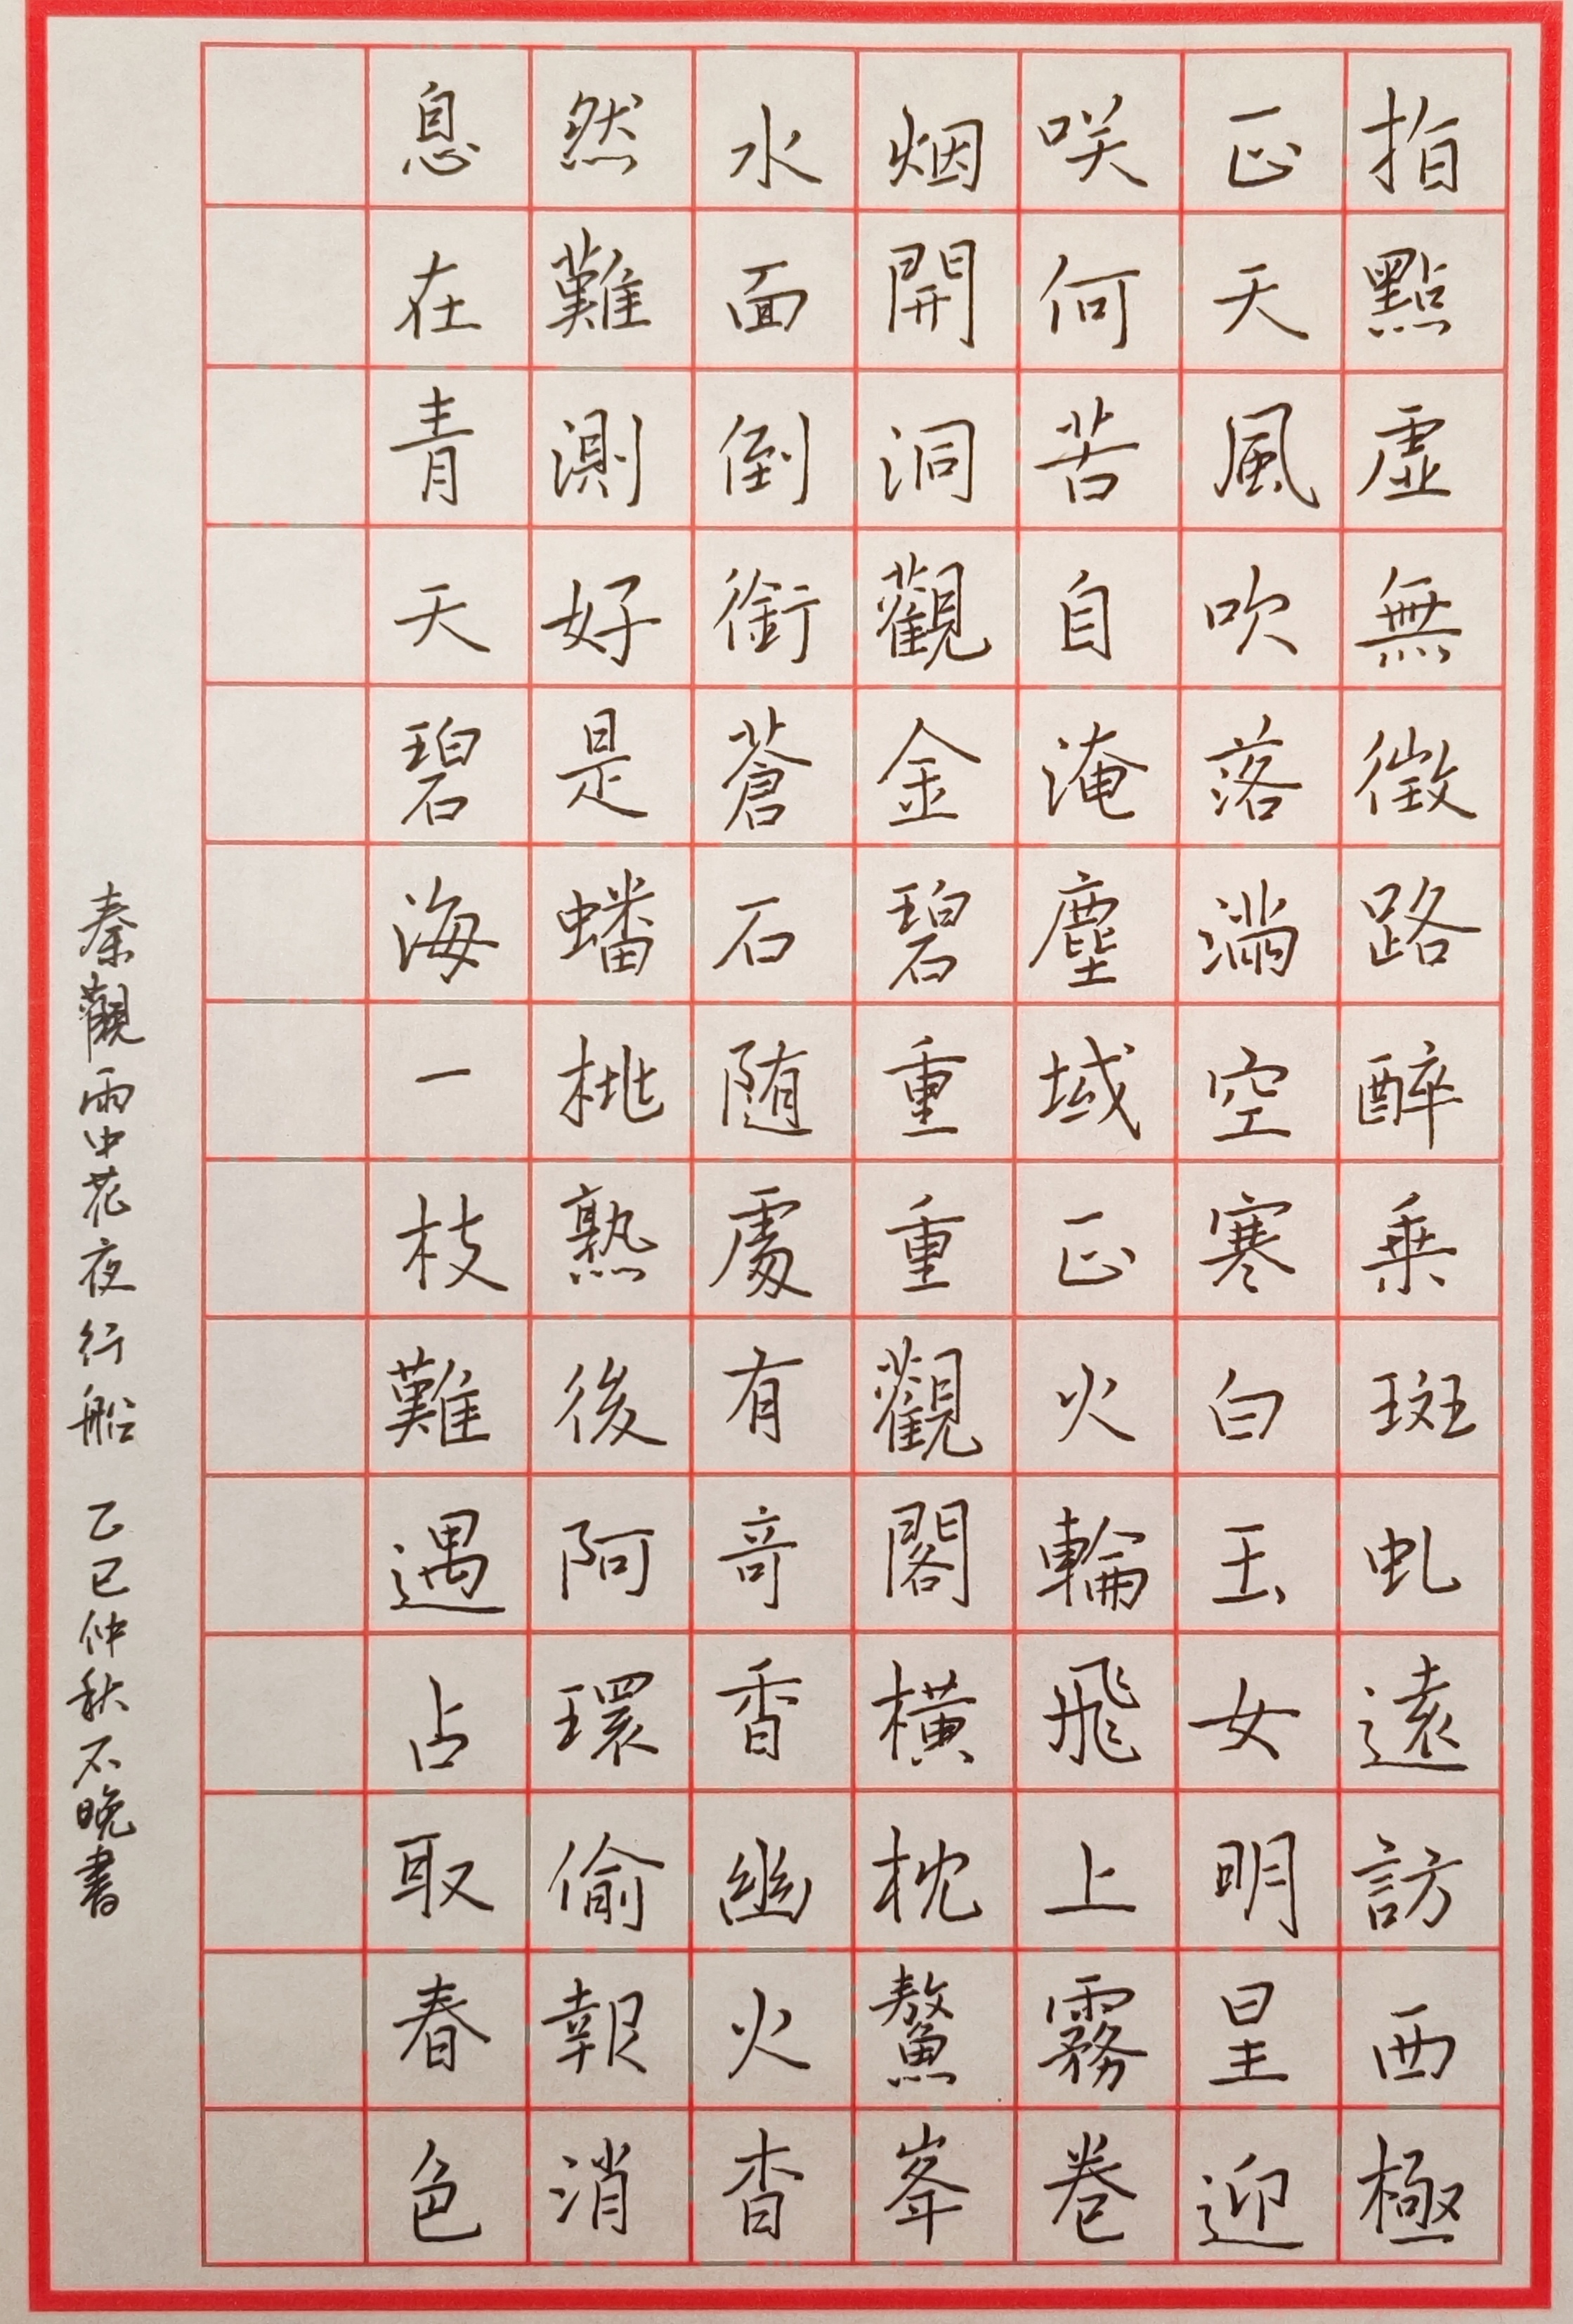 指點虛無徵路醉乘斑虬遠訪西極
正天風吹落滿空寒白玉女明星迎
咲何苦自淹塵域正火輪飛上霧卷
烟開洞觀金碧重重觀閣橫枕鰲峯
水面倒銜蒼石随處有竒香幽火杳
然難測好是蟠桃熟後阿環偷報消
息在青天碧海一枝難遇占取春色
秦觀雨中花夜行船 乙巳仲秋不晚書